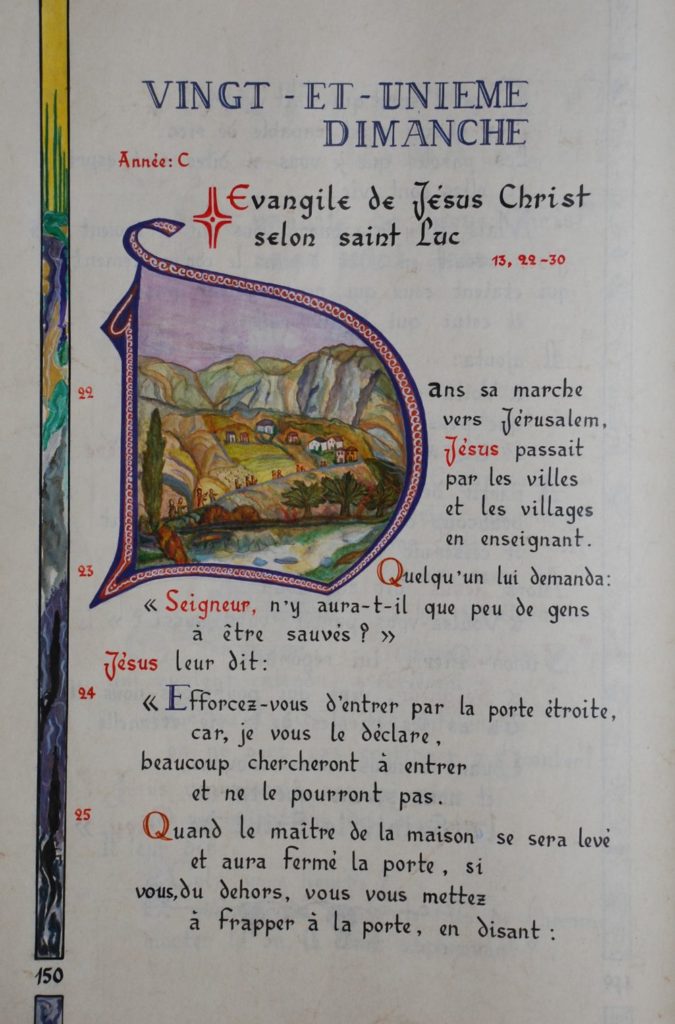 VINGT-ET-UNIEME
DIMANCHE
Année: C
Evangile de Jésus Christ
selon saint Luc
13, 22-30
22
Dans sa marche
vers Jérusalem,
Jésus passait
par les villes
et les villages
en enseignant.
23
Quelqu'un lui demanda:
« Seigneur, n'y aura-t-il que peu de gens
à être sauvés ? »
Jésus leur dit:
24
« Efforcez-vous d'entrer par la porte étroite,
car, je vous le déclare,
beaucoup chercheront à entrer
et ne le pourront pas.
25
Quand le maître de la maison se sera levé
et aura fermé la porte, si
vous, du dehors, vous vous mettez
à frapper à la porte, en disant :
150